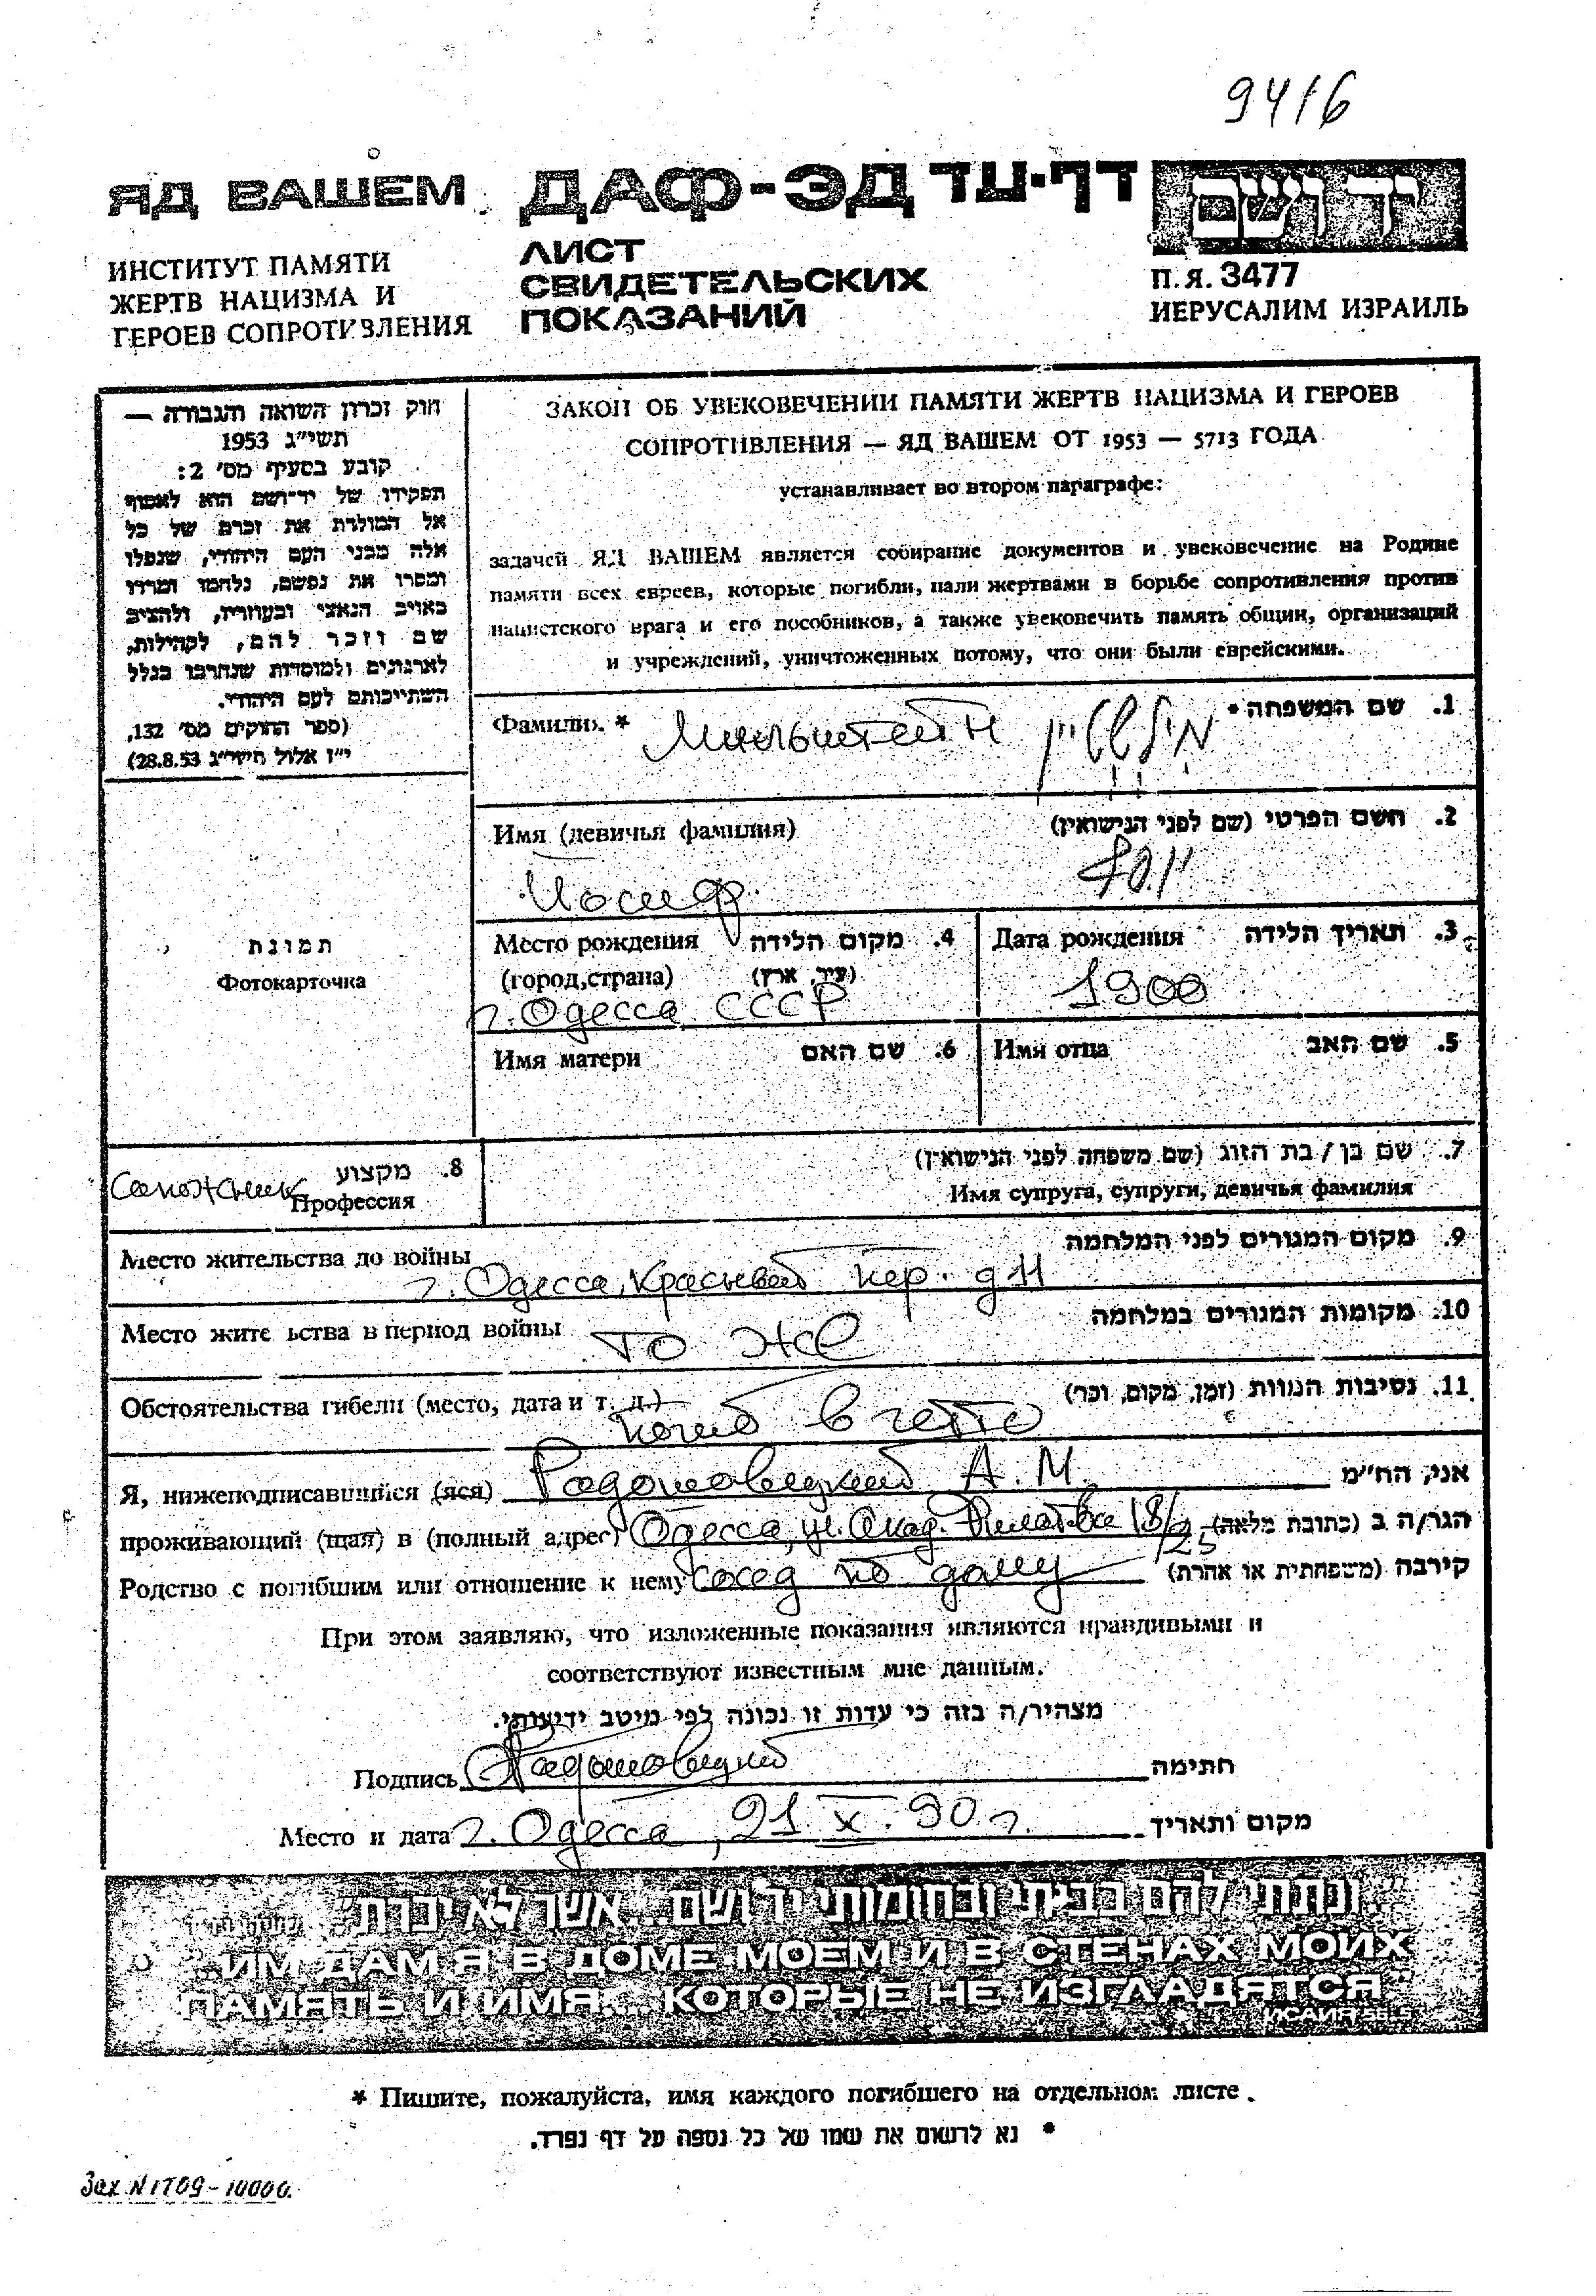 9416
ЯД ВАШЕМ ДАФ-ЭД דף-עד יד ושם
ИНСТИТУТ ПАМЯТИ
ЖЕРТВ НАЦИЗМА И
ГЕРОЕВ СОПРОТИВЛЕНИЯ
ЛИСТ
СВИДЕТЕЛЬСКИХ
ПОКАЗАНИЙ
П. Я. 3477
ИЕРУСАЛИМ ИЗРАИЛЬ
חוק זכרון השואה והגבורה —
תשי״ג 1953
קובע בסעיף מס׳ 2:
תפקידו של יד־ושם הוא לאסוף
אל המולדת את זכרם של כל
אלה מבני העם היהודי, שנפלו
ומסרו את נפשם, נלחמו ומרדו
באויב הנאצי ובעוזריו, ולהציב
שם וזכר להם, לקהילות,
לארגונים ולמוסדות שנחרבו בגלל
השתייכותם לעם היהודי.
(ספר החוקים מס׳ 132,
י״ז אלול תשי״ג 28.8.53)
ЗАКОН ОБ УВЕКОВЕЧЕНИИ ПАМЯТИ ЖЕРТВ НАЦИЗМА И ГЕРОЕВ
СОПРОТИВЛЕНИЯ — ЯД ВАШЕМ ОТ 1953 — 5713 ГОДА
устанавливает во втором параграфе:
задачей ЯД ВАШЕМ является собирание документов и увековечение на Родине
памяти всех евреев, которые погибли, пали жертвами в борьбе сопротивления против
нацистского врага и его пособников, а также увековечить память общин, организаций
и учреждений, уничтоженных потому, что они были еврейскими.
Фамилия * Мильштейн מילשטיין 1. שם המשפחה *
Имя (девичья фамилия) 2. השם הפרטי (שם לפני הנישואין)
Иосиф יוסף
תמונת
Фотокарточка
Место рождения 4. מקום הלידה
(город,страна) (עיר, ארץ)
г. Одесса СССР
Дата рождения 3. תאריך הלידה
1900
Имя матери 6. שם האם
Имя отца 5. שם האב
8. מקצוע
Сапожник Профессия
7. שם בן / בת הזוג (שם משפחה לפני הנישואין)
Имя супруга, супруги, девичья фамилия
Место жительства до войны 9. מקום המגורים לפני המלחמה
г. Одесса, Красный пер. д 11
Место жите ьства в период войны то же 10. מקומות המגורים במלחמה
Обстоятельства гибели (место, дата и т. д.) 11. נסיבות המוות (זמן, מקום, וכו׳)
погиб в гетто
Я, нижеподписавшийся (яся) Радошовецкий А. М. אני, הח״מ
проживающий (щая) в (полный адрес) Одесса, ул. Акад. Филатова 18/2, 25 הגר/ה ב (כתובת מלאה)
Родство с погибшим или отношение к нему сосед по дому קירבה (משפחתית או אחרת)
При этом заявляю, что изложенные показания являются правдивыми и
соответствуют известным мне данным.
מצהיר/ה בזה כי עדות זו נכונה לפי מיטב ידיעותי.
Подпись Радошовецкий חתימה
Место и дата г. Одесса, 21 X. 90 г. מקום ותאריך
"...ונתתי להם בביתי ובחומותי יד ושם... אשר לא יכרת"
"...ИМ ДАМ Я В ДОМЕ МОЕМ И В СТЕНАХ МОИХ
ПАМЯТЬ И ИМЯ... КОТОРЫЕ НЕ ИЗГЛАДЯТСЯ"
* Пишите, пожалуйста, имя каждого погибшего на отдельном листе.
* נא לרשום את שמו של כל נספה על דף נפרד.
Зак N 1709 - 10000.